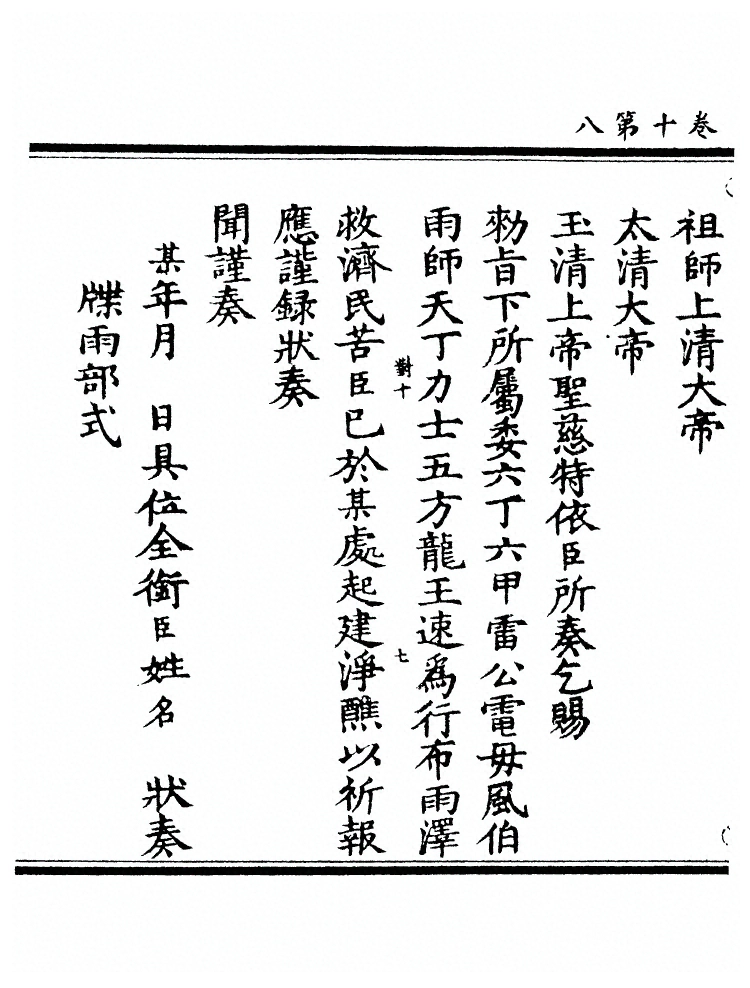 卷十第八
祖師上清大帝
太清大帝
玉清上帝聖慈特依臣所奏乞賜
勑旨下所屬委六丁六甲雷公電毋風伯
雨師天丁力士五方龍王速為行布雨澤
對十
七
救濟民苦臣已於某處起建淨醮以祈報
應謹録狀奏
聞謹奏
某年月 日具位全銜臣姓名 狀奏
牒雨部式